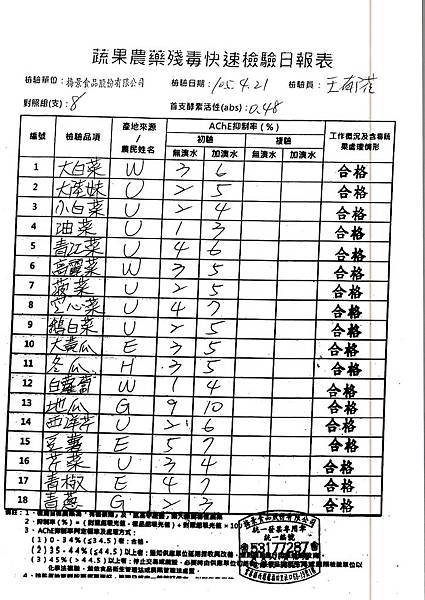 蔬果農藥殘毒快速檢驗日報表
檢驗單位：揚景食品股份有限公司 檢驗日期：105.4.21 檢驗員：
對照組(支)：8 首支酵素活性(abs)：0.48
編號 檢驗品項 產地來源/農民姓名 AChE抑制率(%) 工作概況及含毒蔬果處理情形
初驗 複驗
無滴水 加滴水 無滴水 加滴水
1 大白菜 W 3 6 合格
2 大陸妹 U 2 5 合格
3 小白菜 U 2 4 合格
4 油菜 U 1 3 合格
5 青江菜 U 4 6 合格
6 高麗菜 W 3 5 合格
7 菠菜 U 2 5 合格
8 空心菜 U 4 7 合格
9 鵝白菜 U 2 5 合格
10 大黃瓜 E 3 5 合格
11 冬瓜 H 3 5 合格
12 白蘿蔔 W 1 4 合格
13 地瓜 G 9 10 合格
14 西洋芹 U 2 6 合格
15 豆薯 E 5 7 合格
16 芹菜 U 3 4 合格
17 青椒 E 4 7 合格
18 青蔥 G 2 3 合格
2．抑制率(%)=(對照組吸光值-樣品組吸光值)÷對照組吸光值×100
3．AChE抑制率判定標準及處理方式：
(1) 0-34% (≦34.5) 者：合格。
(2) 35-44% (≦44.5) 以上者：
(3) 45% (＞44.5) 以上者：
統一發票專用章
統一編號
53177287